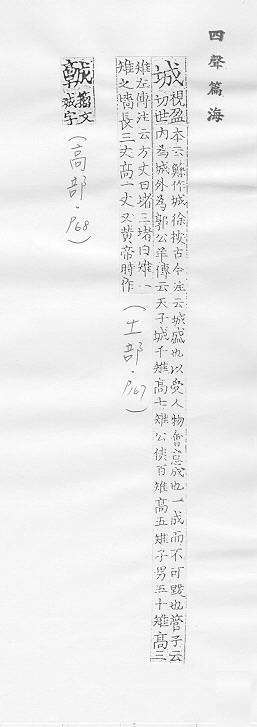 四聲篇海
城 視盈本云鯀作城徐按古今注云城盛也以受人物晉宮成也一成而不可毀也管子云
初世內為城外為郭公羊傳云天子城千雉高七雉公侯百雉高五雉子男五十雉高三
雉左傳注云方丈曰堵三堵曰雉一
雉之墻長三丈高一丈又黃帝時作
(土部．P167)
籀文
城字
(高部．P68)